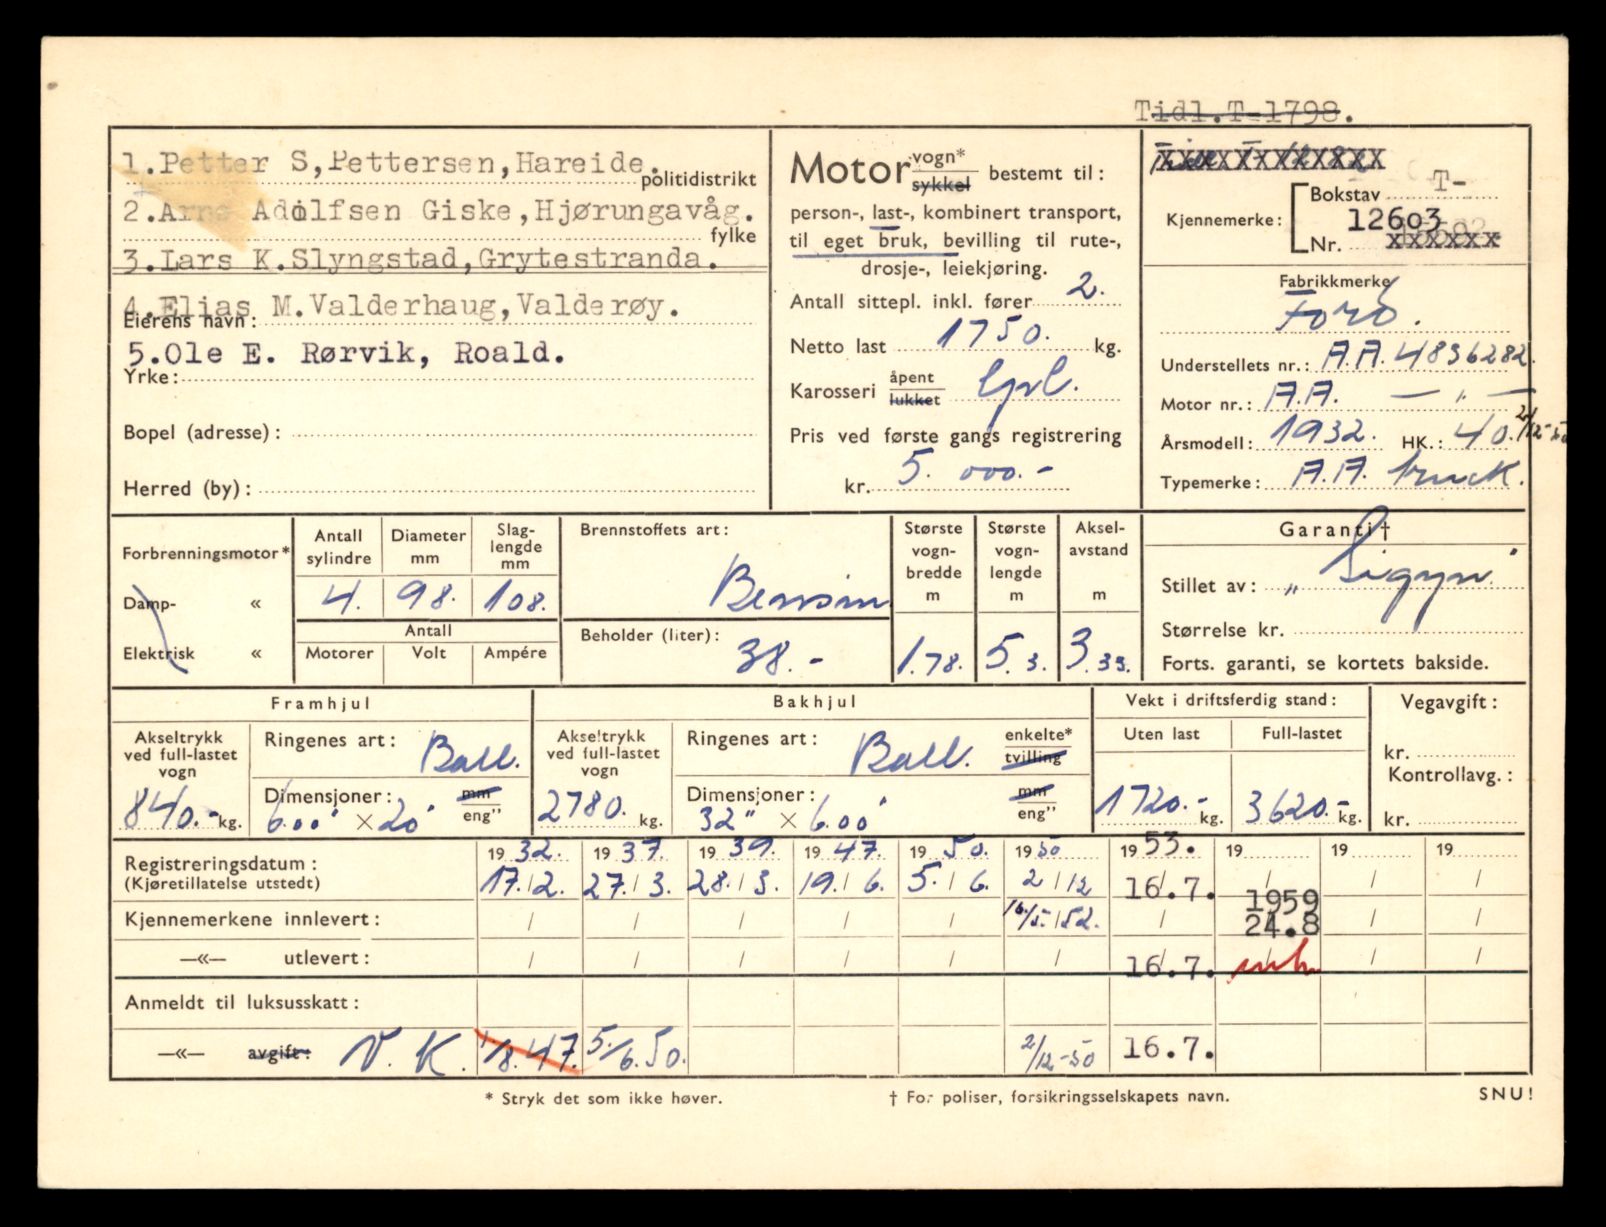 Tidl.T-1798.
1.Petter S,Pettersen,Hareide.
politidistrikt
2.Arne Adolfsen Giske,Hjørungavåg.
fylke
3.Lars K.Slyngstad,Grytestranda.
4.Elias M.Valderhaug,Valderøy.
Eierens navn:
5.Ole E. Rørvik, Roald.
Yrke:
Bopel (adresse):
Herred (by):
Motor vogn* sykkel bestemt til:
person-, last-, kombinert transport,
til eget bruk, bevilling til rute-,
drosje-, leiekjøring.
Antall sittepl. inkl. fører 2.
Netto last 1750. kg.
Karosseri åpent lukket
Pris ved første gangs registrering
kr. 5.000.-
Kjennemerke: Bokstav T-
Nr. 12603
Fabrikkmerke
Ford.
Understellets nr.: A.A. 4836282.
Motor nr.: A.A. — " —
Årsmodell: 1932. HK.: 40. 2/12-50
Typemerke: A.A. truck.
Forbrenningsmotor*
Damp- «
Elektrisk «
Antall sylindre Diameter mm Slag-lengde mm
4. 98. 108.
Antall
Motorer Volt Ampére
Brennstoffets art:
Bensin
Beholder (liter):
38.-
Største vogn-bredde m Største vogn-lengde m Aksel-avstand m
1.78. 5.3. 3.33.
Garanti†
Stillet av: „ Sigyn.
Størrelse kr.
Forts. garanti, se kortets bakside.
Framhjul
Akseltrykk ved full-lastet vogn
840.- kg.
Ringenes art: Ball.
Dimensjoner: mm eng"
6.00" × 20"
Bakhjul
Akseltrykk ved full-lastet vogn
2780. kg.
Ringenes art: Ball. enkelte* tvilling
Dimensjoner: mm eng"
32" × 6.00"
Vekt i driftsferdig stand:
Uten last Full-lastet
1720.- kg. 3620.- kg.
Vegavgift:
kr.
Kontrollavg.:
kr.
Registreringsdatum: 1932. 1937. 1939. 1947. 1950. 1950 1953. 19 19 19
(Kjøretillatelse utstedt) 17./2. 27./3. 28./3. 19./6. 5./6. 2/12 16.7. / / /
Kjennemerkene innlevert: / / / / / 16/5-52. / 1959 24.8 / /
—«— utlevert: / / / / / / 16.7. / / /
Anmeldt til luksusskatt:
—«— avgift: V.K. 1/8.47. 5/6.50. 2/12-50 16.7.
* Stryk det som ikke høver.
† For poliser, forsikringsselskapets navn.
SNU!